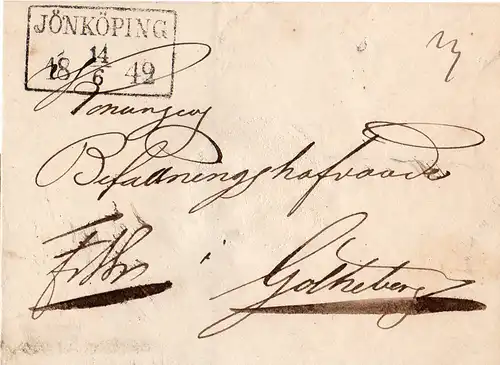 JÖNKÖPING
18 14/6 49
Konungens
Befallningshafvande
i
Götheborg